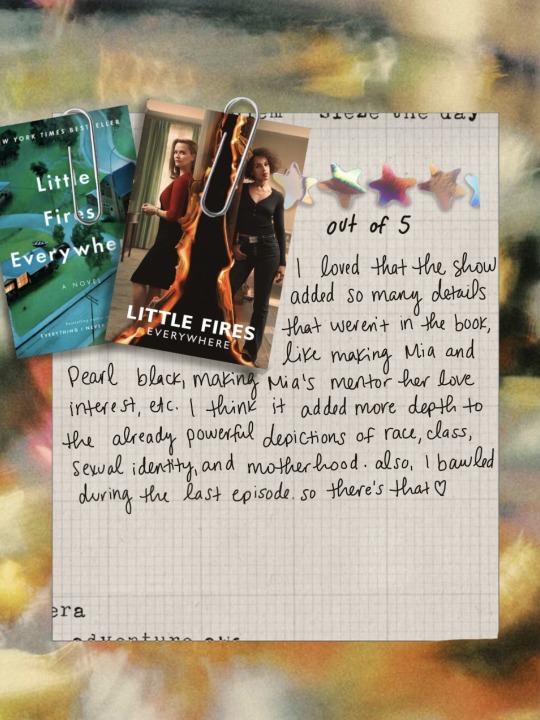 em sieze the day
W YORK TIMES BEST ELLER
Little
Fires
Everywhe
A NOVEL
EVERYTHING I NEVE
LITTLE FIRES
EVERYWHERE
out of 5
I loved that the show
added so many details
that weren't in the book,
like making Mia and
Pearl black, making Mia's mentor her love
interest, etc. I think it added more depth to
the already powerful depictions of race, class,
sexual identity, and motherhood. also, I bawled
during the last episode. so there's that♡
era
adventure